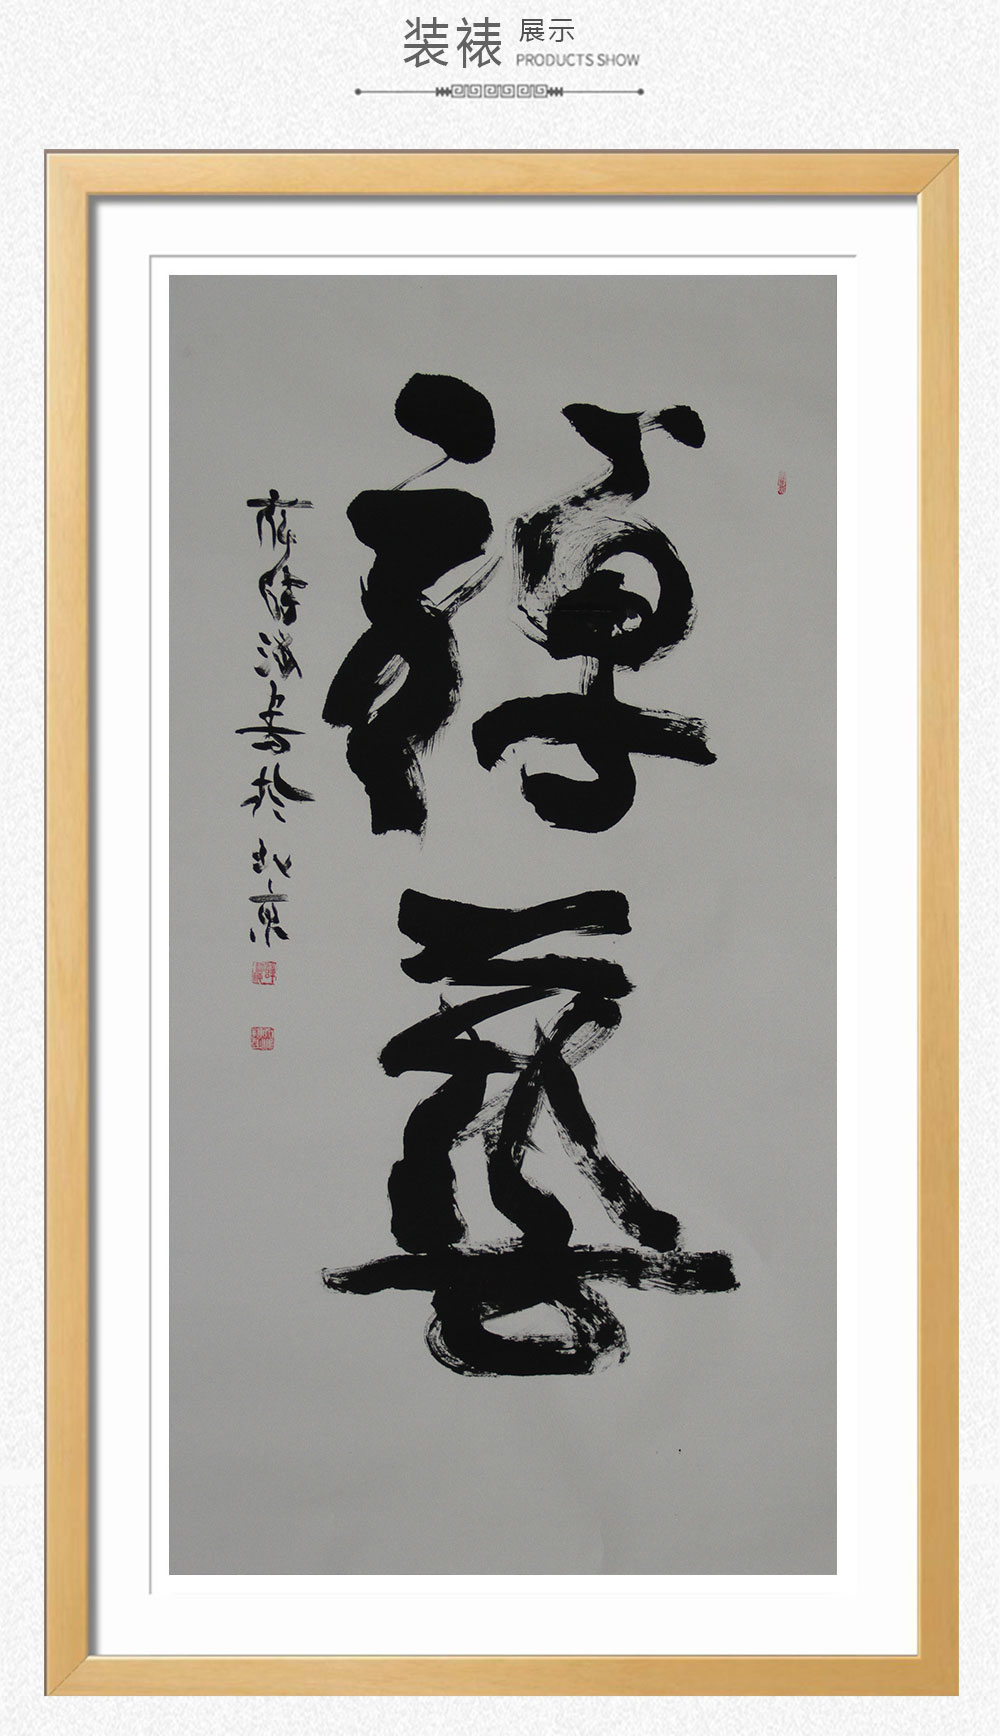 装裱 展示
PRODUCTS SHOW
禪藝
書於北京